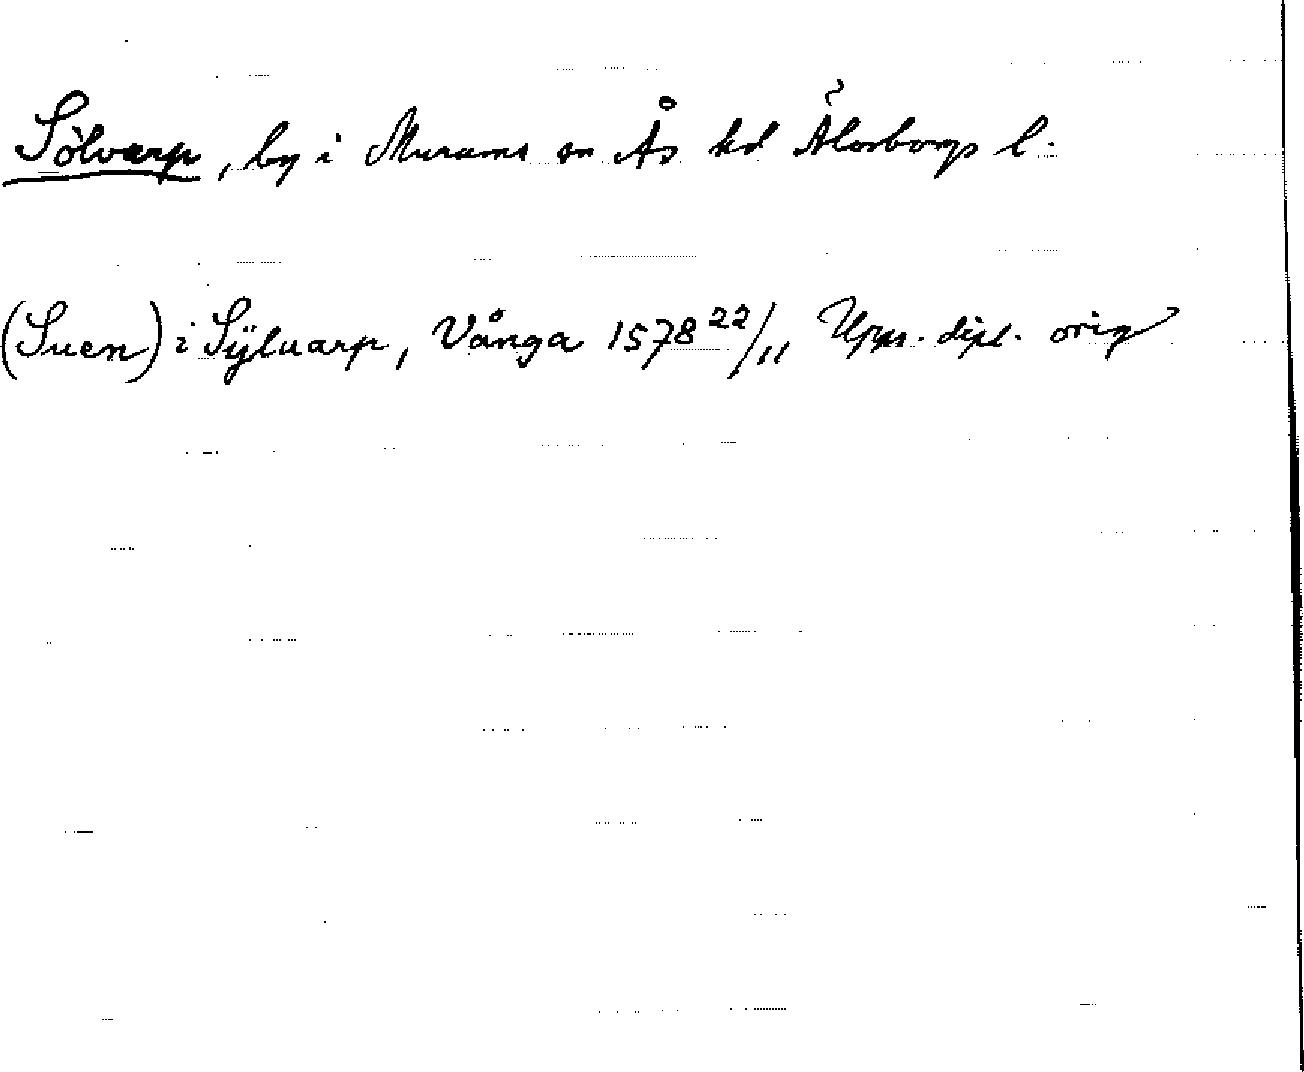 Sölvarp, by i Murums sn Ås hd Älvsborgs l.
(Suen) i Sÿluarp, Vånga 1578 22/11 Upps. dipl. orig